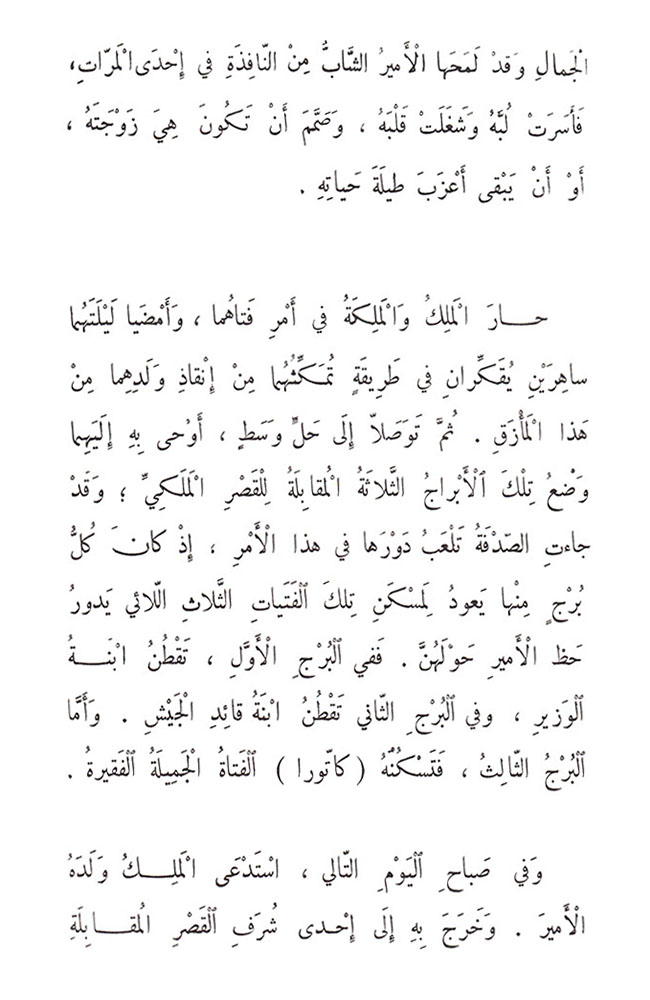 الْجَمالِ وَقدْ لَمَحَها الْأَميرُ الشَّابُّ مِنْ النّافِذَةِ في إِحْدَى الْمَرّاتِ،
فَأَسَرَتْ لُبَّهُ وَشَغَلَتْ قَلْبَهُ ، وَصَمَّمَ أَنْ تَكُونَ هِيَ زَوْجَتَهُ ،
أَوْ أَنْ يَبْقى أَعْزَبَ طيلَةَ حَياتِهِ .
حـارَ الْمَلِكُ وَالْمَلِكَةُ في أَمْرِ فَتاهُما ، وَأَمْضَيا لَيْلَتَهُما
ساهِرَيْنِ يُفَكِّرانِ في طَريقَةٍ تُمَكِّنُهُما مِنْ إِنْقاذِ وَلَدِهِما مِنْ
هَذا الْمَأْزَقِ . ثُمَّ تَوَصَلاّ إِلَى حَلٍّ وَسَطٍ ، أَوْحى بِهِ إِلَيْهِما
وَضْعُ تِلْكَ الْأَبْراجُ الثَّلاثَةُ الْمُقابِلَةُ لِلْقَصْرِ الْمَلَكِيِّ ؛ وَقَدْ
جاءتِ الصّدْفَةُ تَلْعَبُ دَوْرَها في هذا الْأَمْرِ ، إِذْ كانَ كُلُّ
بُرْجٍ مِنْها يَعودُ لِمَسْكَنِ تِلكَ الْفَتَياتِ الثَّلاثِ اللّائي يَدورُ
حَظ الْأَميرِ حَوْلَهُنَّ . فَفي الْبُرْجِ الْأَوَّلِ ، تَقْطُنُ ابْنَـةُ
الْوَزيرِ ، وفي الْبُرْجِ الثّاني تَقْطُنُ ابْنَةُ قائِدِ الْجَيْشِ . وَأَمَّا
الْبُرْجُ الثّالِثُ ، فَتَسْكُنُهُ ( كاتّورا ) الْفَتاةُ الْجَميلَةُ الْفَقيرةُ .
وَفي صَباحِ الْيَوْمِ التّالي ، اسْتَدْعَى الْمَلِـكُ وَلَدَهُ
الْأَميرَ . وَخَرَجَ بِهِ إِلَى إِحْـدى شُرَفِ الْقَصْرِ الْمُقـابِلَةِ